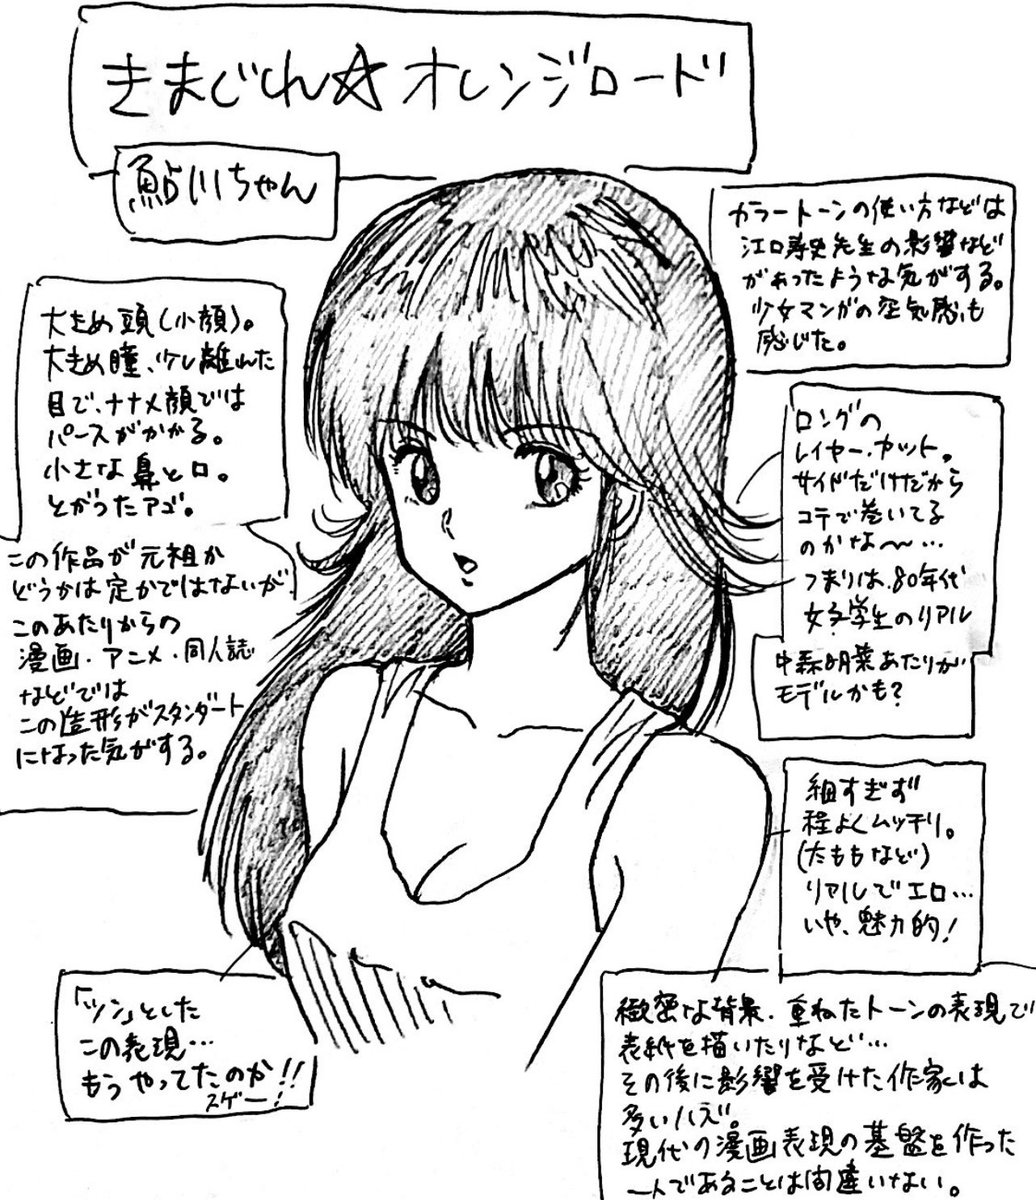 きまぐれ☆オレンジロード
鮎川ちゃん
カラートーンの使い方などは
江口寿史先生の影響など
があったような気がする。
少女マンガの空気感も
感じた。
大きめ頭(小顔)。
大きめ瞳、少し離れた
目で、ナナメ顔では
パースがかかる。
小さな鼻と口。
とがったアゴ。
この作品が元祖か
どうかは定かではないが、
このあたりからの
漫画・アニメ・同人誌
などでは
この造形がスタンダート
になった気がする。
ロングの
レイヤーカット。
サイドだけだから
コテで巻いてる
のかな〜…
つまりは、80年代
女子学生のリアル
中森明菜あたりが
モデルかも?
細すぎず
程よくムッチリ。
(太ももなど)
リアルでエロ…
いや、魅力的!
「ツン」とした
この表現…
もうやってたのか!!
スゲー!
緻密な背景、重ねたトーンの表現で
表紙を描いたりなど…
その後に影響を受けた作家は
多いハズ。
現代の漫画表現の基盤を作った
一人であることは間違いない。